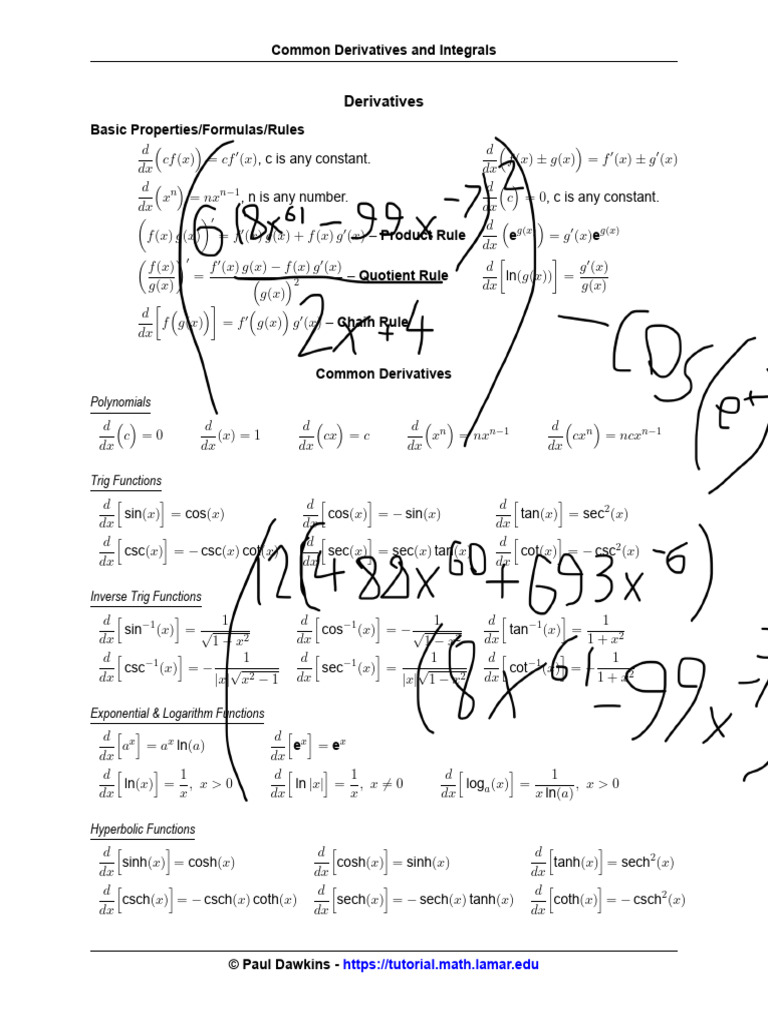 Common Derivatives and Integrals
Derivatives
Basic Properties/Formulas/Rules
d/dx (cf(x)) = cf′(x), c is any constant. d/dx (f(x) ± g(x)) = f′(x) ± g′(x)
d/dx (xⁿ) = nxⁿ⁻¹, n is any number. d/dx (c) = 0, c is any constant.
(f(x) g(x))′ = f′(x) g(x) + f(x) g′(x) – Product Rule d/dx (e^(g(x))) = g′(x)e^(g(x))
(f(x)/g(x))′ = (f′(x) g(x) − f(x) g′(x))/(g(x))² – Quotient Rule d/dx [ln(g(x))] = g′(x)/g(x)
d/dx [f(g(x))] = f′(g(x)) g′(x) – Chain Rule
(6(8x^61 − 99x^-7)^2
2x + 4)
− (D5(e^+
Common Derivatives
Polynomials
d/dx (c) = 0 d/dx (x) = 1 d/dx (cx) = c d/dx (xⁿ) = nxⁿ⁻¹ d/dx (cxⁿ) = ncxⁿ⁻¹
Trig Functions
d/dx [sin(x)] = cos(x) d/dx [cos(x)] = − sin(x) d/dx [tan(x)] = sec²(x)
d/dx [csc(x)] = − csc(x) cot(x) d/dx [sec(x)] = sec(x) tan(x) d/dx [cot(x)] = − csc²(x)
(12(488x^60 + 693x^-6)
(8x^61 − 99x^-7
Inverse Trig Functions
d/dx [sin⁻¹(x)] = 1/√(1 − x²) d/dx [cos⁻¹(x)] = − 1/√(1 − x²) d/dx [tan⁻¹(x)] = 1/(1 + x²)
d/dx [csc⁻¹(x)] = − 1/(|x|√(x² − 1)) d/dx [sec⁻¹(x)] = 1/(|x|√(1 − x²)) d/dx [cot⁻¹(x)] = − 1/(1 + x²)
Exponential & Logarithm Functions
d/dx [aˣ] = aˣ ln(a) d/dx [eˣ] = eˣ
d/dx [ln(x)] = 1/x, x > 0 d/dx [ln |x|] = 1/x, x ≠ 0 d/dx [logₐ(x)] = 1/(x ln(a)), x > 0
Hyperbolic Functions
d/dx [sinh(x)] = cosh(x) d/dx [cosh(x)] = sinh(x) d/dx [tanh(x)] = sech²(x)
d/dx [csch(x)] = − csch(x) coth(x) d/dx [sech(x)] = − sech(x) tanh(x) d/dx [coth(x)] = − csch²(x)
© Paul Dawkins - https://tutorial.math.lamar.edu